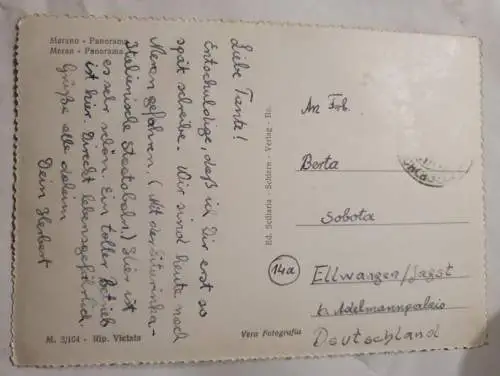 Merano - Panorama
Meran - Panorama
Liebe Tante!
Entschuldige, daß ich Dir erst so
spät schreibe. Wir sind heute nach
Meran gefahren. (Mit der
Italienische Staatsbahn.) Hier ist
es sehr schön. Ein toller Betrieb
ist hier. Direkt lebensgefährlich.
Grüße alle daheim
Dein Herbert
M. 2/104 - Rip. Vietata
Ed. Stelleria - Verlag - Bz.
Vera Fotografia
An Frl.
Berta
Sobota
14a
Ellwangen/Jagst
Adelmannpalais
Deutschland